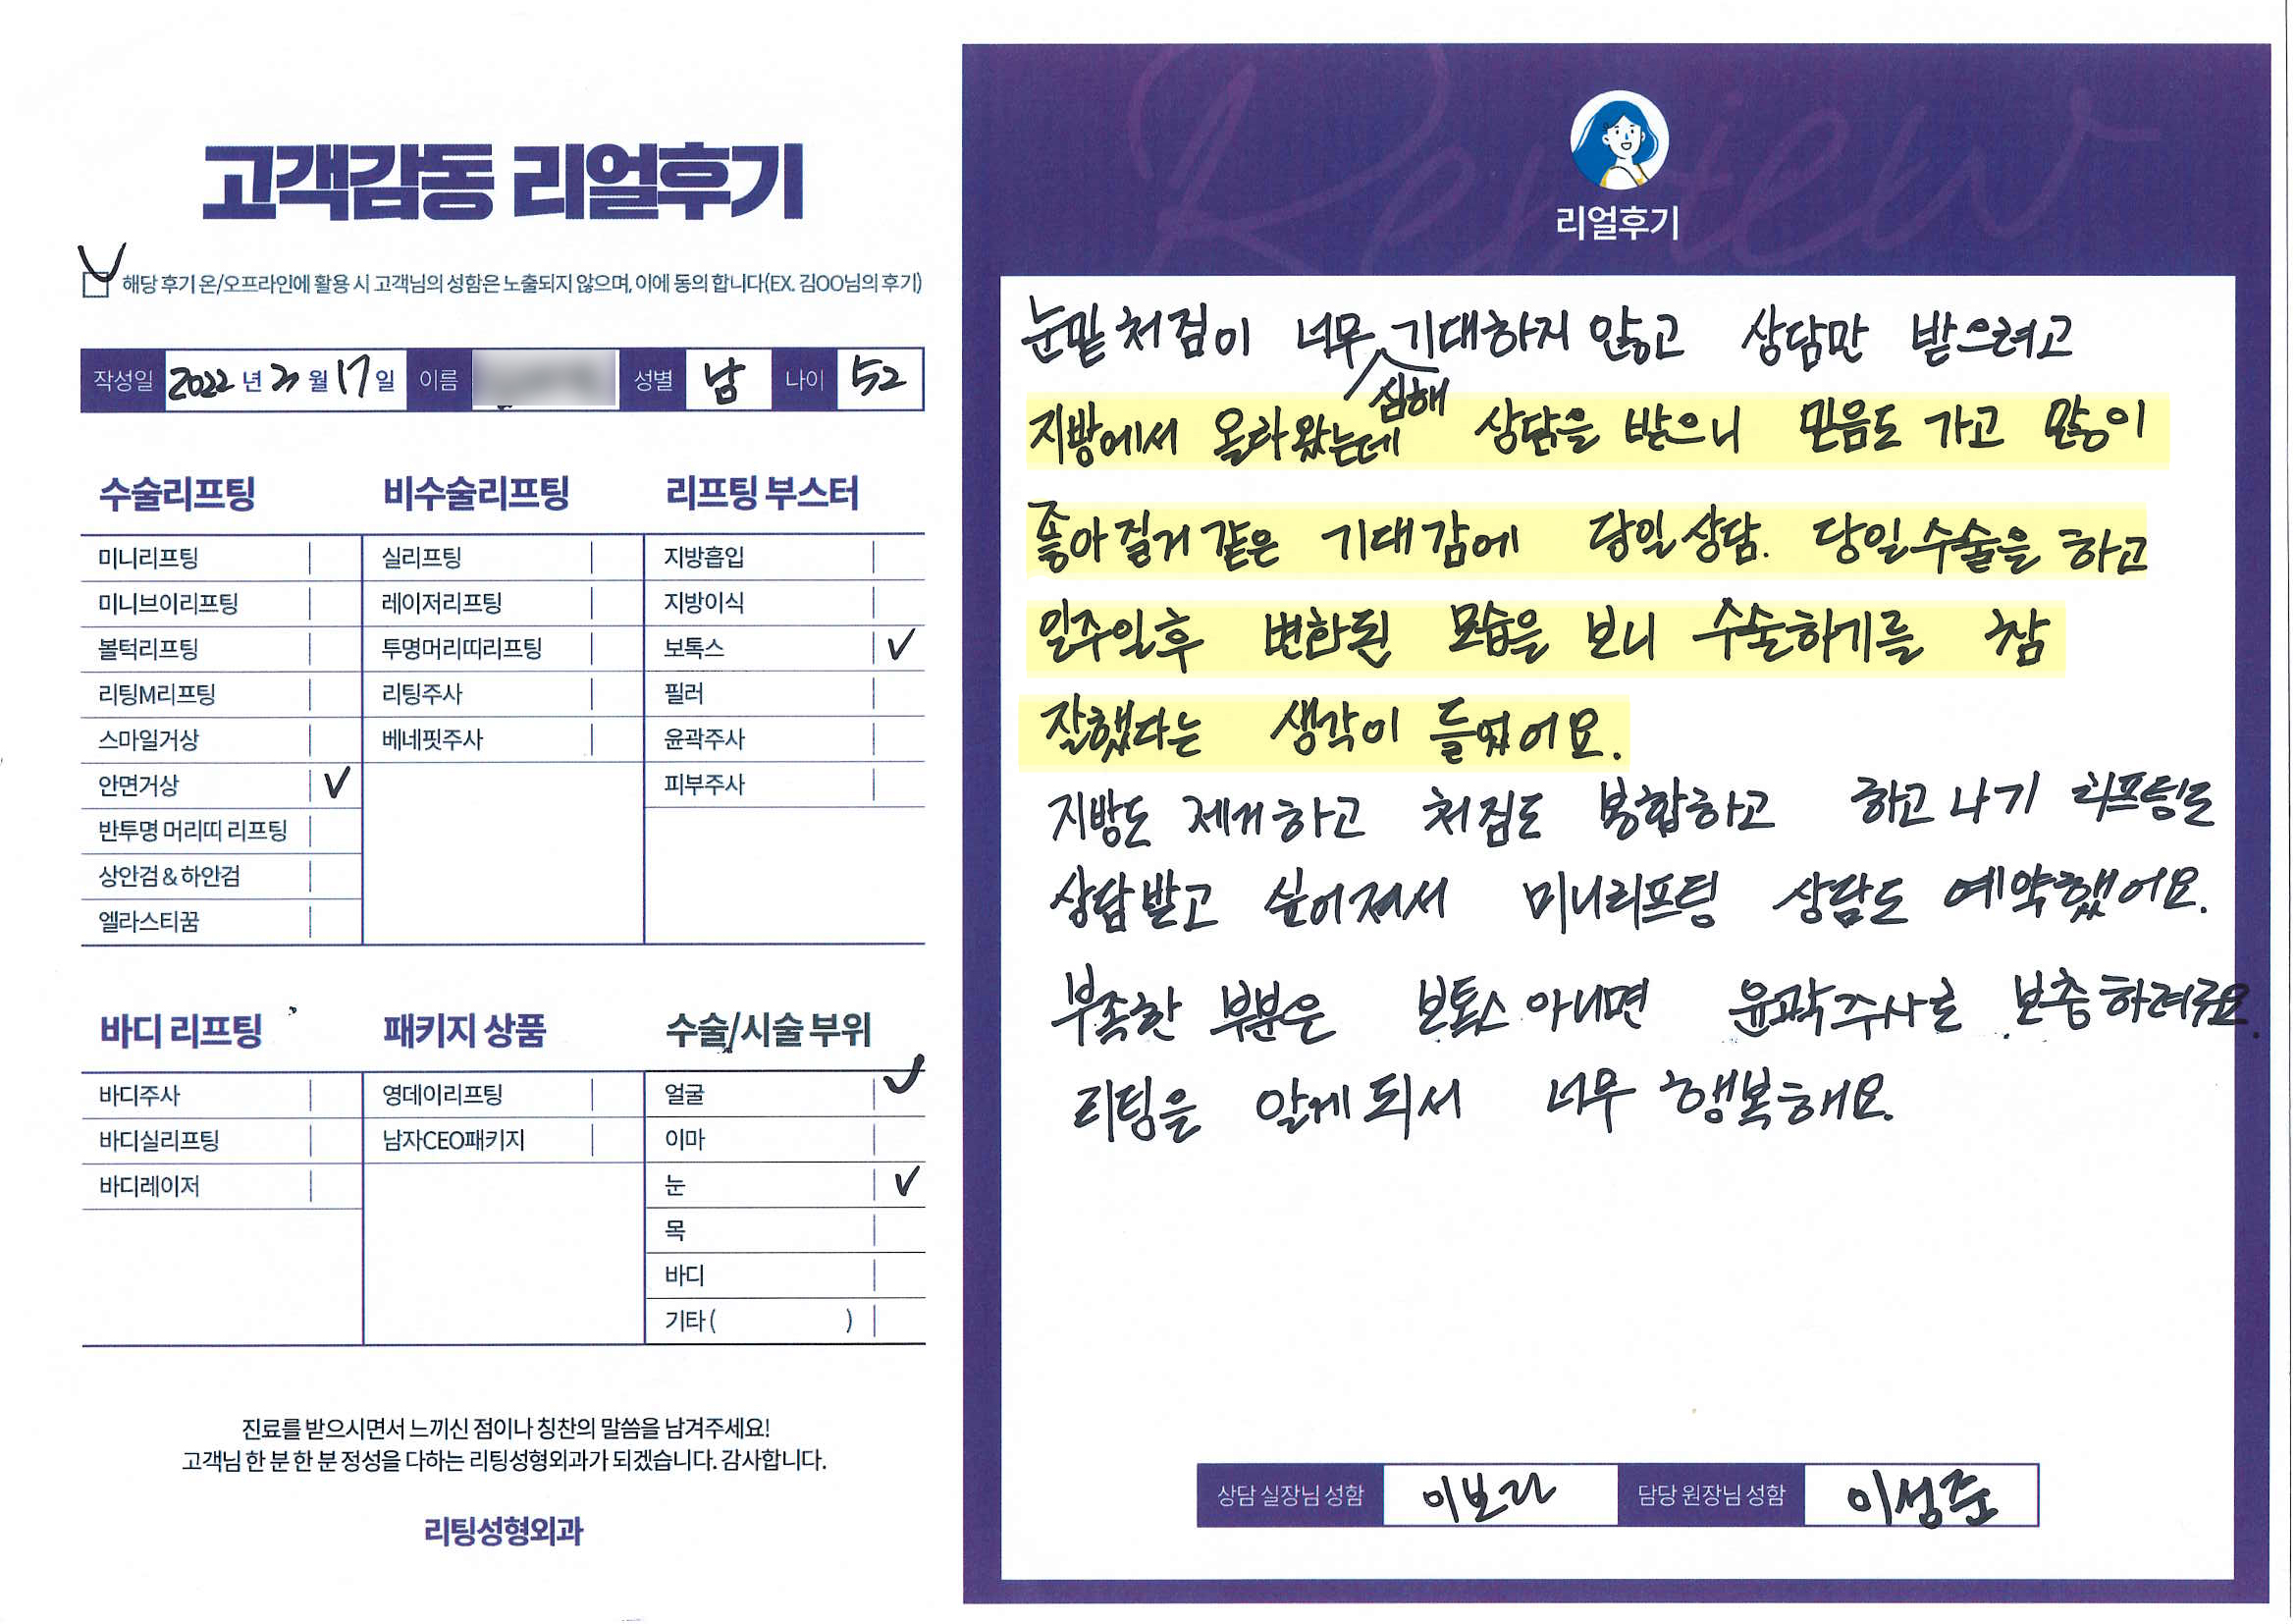 고객감동 리얼후기
해당 후기 온/오프라인에 활용 시 고객님의 성함은 노출되지 않으며, 이에 동의 합니다(EX. 김OO님의 후기)
작성일 2022 년 3 월 17 일 이름 성별 남 나이 52
수술리프팅
미니리프팅
미니브이리프팅
볼턱리프팅
리팅M리프팅
스마일거상
안면거상 ✓
반투명 머리띠 리프팅
상안검 & 하안검
엘라스티꿈
비수술리프팅
실리프팅
레이저리프팅
투명머리띠리프팅
리팅주사
베네핏주사
리프팅 부스터
지방흡입
지방이식
보톡스 ✓
필러
윤곽주사
피부주사
바디 리프팅
바디주사
바디실리프팅
바디레이저
패키지 상품
영데이리프팅
남자CEO패키지
수술/시술 부위
얼굴 ✓
이마
눈 ✓
목
바디
기타 ( )
진료를 받으시면서 느끼신 점이나 칭찬의 말씀을 남겨주세요!
고객님 한 분 한 분 정성을 다하는 리팅성형외과가 되겠습니다. 감사합니다.
리팅성형외과
Review
리얼후기
눈밑 처짐이 너무 심해 기대하지 않고 상담만 받으려고
지방에서 올라왔는데 상담을 받으니 믿음도 가고 많이
좋아질거 같은 기대감에 당일상담. 당일수술을 하고
일주일후 변화된 모습을 보니 수술하기를 참
잘했다는 생각이 들었어요.
지방도 제거하고 처짐도 봉합하고 하고나기 리프팅도
상담받고 싶어져서 미니리프팅 상담도 예약했어요.
부족한 부분은 보톡스 아니면 윤곽주사로 보충하려구요.
리팅을 알게되서 너무 행복해요.
상담 실장님 성함 이보라 담당 원장님 성함 이성준